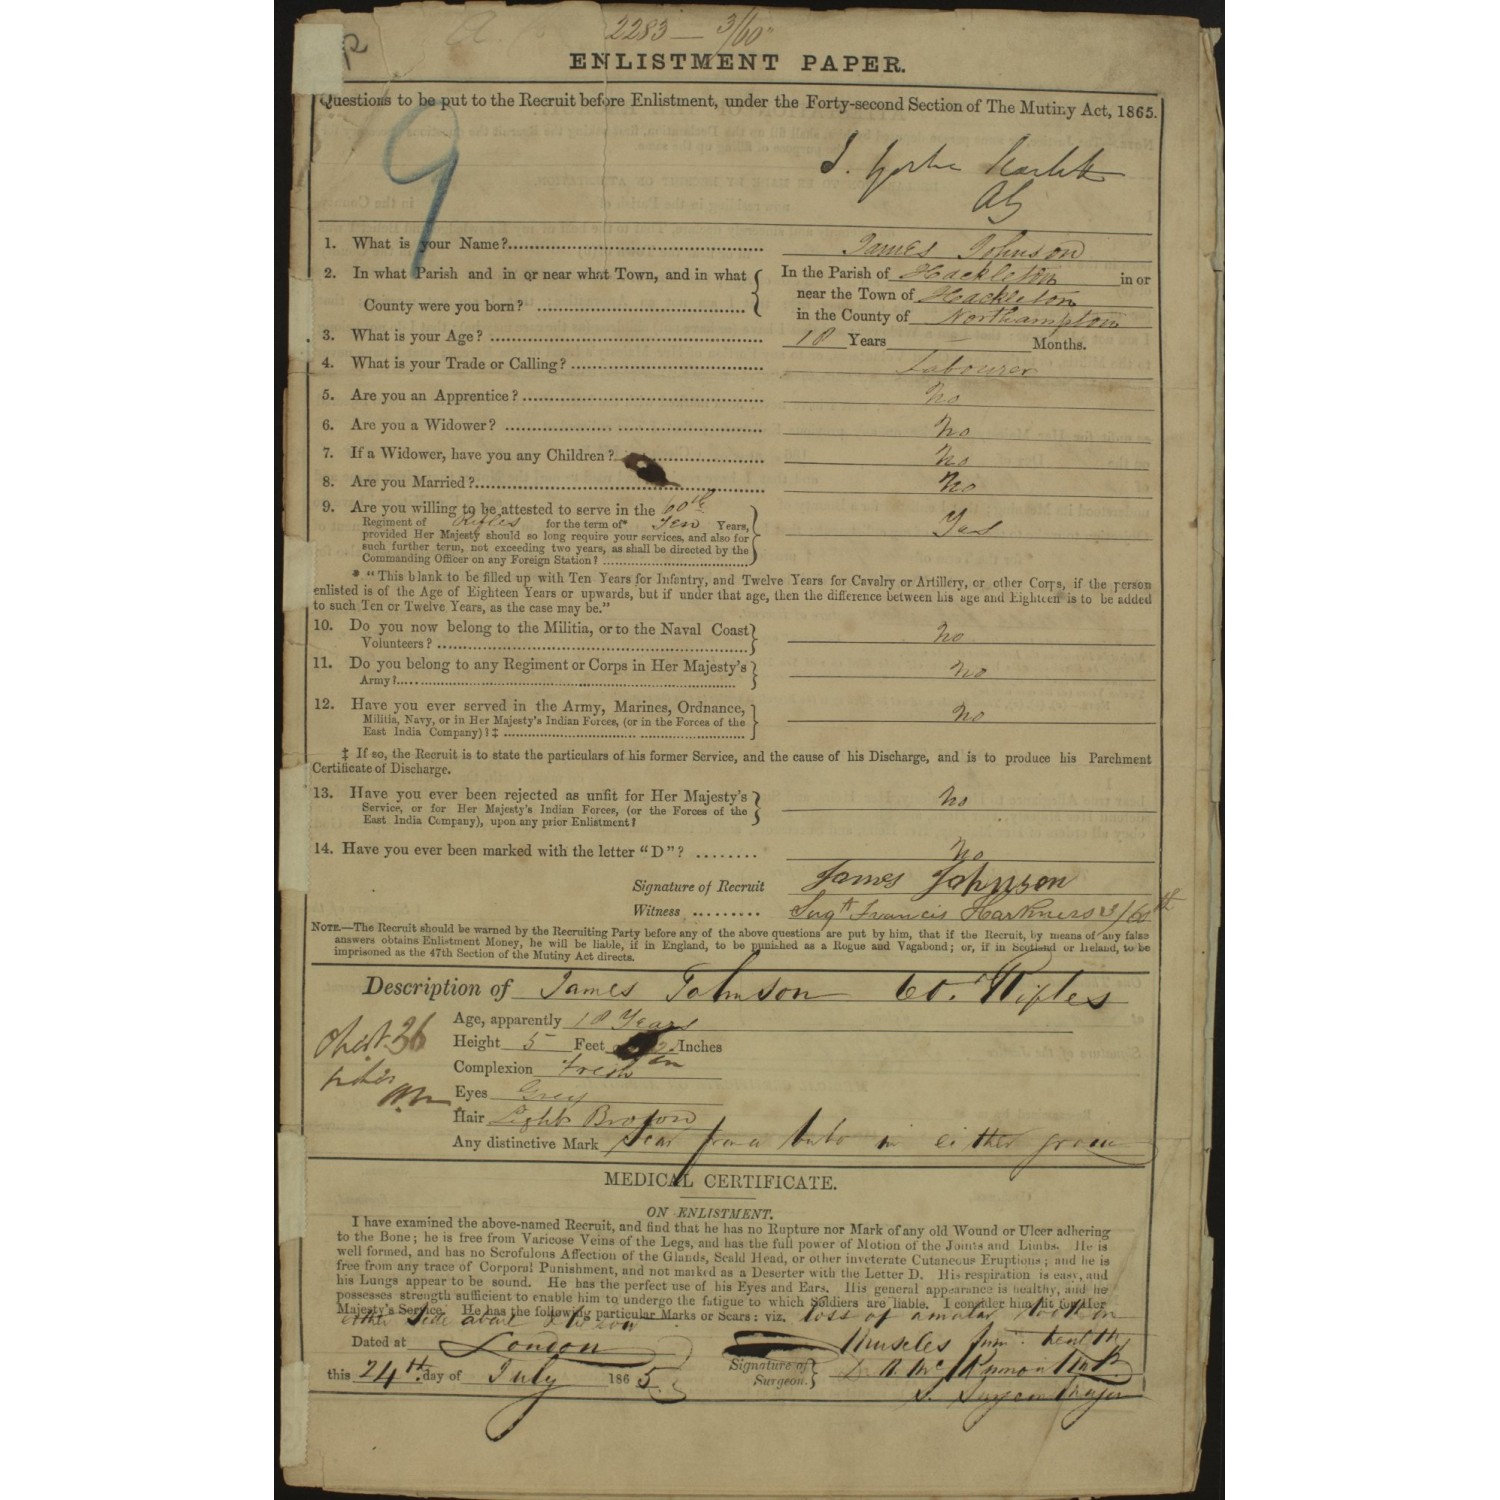 2283 — 3/60
ENLISTMENT PAPER.
Questions to be put to the Recruit before Enlistment, under the Forty-second Section of The Mutiny Act, 1865.
9
1. What is your Name? James Johnson
2. In what Parish and in or near what Town, and in what County were you born? In the Parish of Hackleton in or
near the Town of Hackleton
in the County of Northampton
3. What is your Age? 18 Years — Months.
4. What is your Trade or Calling? Labourer
5. Are you an Apprentice? No
6. Are you a Widower? No
7. If a Widower, have you any Children? No
8. Are you Married? No
9. Are you willing to be attested to serve in the 60th
Regiment of Rifles for the term of* Ten Years,
provided Her Majesty should so long require your services, and also for
such further term, not exceeding two years, as shall be directed by the
Commanding Officer on any Foreign Station? Yes
* "This blank to be filled up with Ten Years for Infantry, and Twelve Years for Cavalry or Artillery, or other Corps, if the person
enlisted is of the Age of Eighteen Years or upwards, but if under that age, then the difference between his age and Eighteen is to be added
to such Ten or Twelve Years, as the case may be."
10. Do you now belong to the Militia, or to the Naval Coast
Volunteers? No
11. Do you belong to any Regiment or Corps in Her Majesty's
Army? No
12. Have you ever served in the Army, Marines, Ordnance,
Militia, Navy, or in Her Majesty's Indian Forces, (or in the Forces of the
East India Company)? ‡ No
‡ If so, the Recruit is to state the particulars of his former Service, and the cause of his Discharge, and is to produce his Parchment
Certificate of Discharge.
13. Have you ever been rejected as unfit for Her Majesty's
Service, or for Her Majesty's Indian Forces, (or the Forces of the
East India Company), upon any prior Enlistment? No
14. Have you ever been marked with the letter "D"? No
Signature of Recruit James Johnson
Witness Francis Harkness 3/60th
NOTE.—The Recruit should be warned by the Recruiting Party before any of the above questions are put by him, that if the Recruit, by means of any false
answers obtains Enlistment Money, he will be liable, if in England, to be punished as a Rogue and Vagabond; or, if in Scotland or Ireland, to be
imprisoned as the 47th Section of the Mutiny Act directs.
Description of James Johnson 60. Rifles
Age, apparently 18 Years
Chest 36
Height 5 Feet Inches
Complexion Fresh
Eyes Grey
Hair Light Brown
Any distinctive Mark Scar from a bubo in either groin
MEDICAL CERTIFICATE.
ON ENLISTMENT.
I have examined the above-named Recruit, and find that he has no Rupture nor Mark of any old Wound or Ulcer adhering
to the Bone; he is free from Varicose Veins of the Legs, and has the full power of Motion of the Joints and Limbs. He is
well formed, and has no Scrofulous Affection of the Glands, Scald Head, or other inveterate Cutaneous Eruptions; and he is
free from any trace of Corporal Punishment, and not marked as a Deserter with the Letter D. His respiration is easy, and
his Lungs appear to be sound. He has the perfect use of his Eyes and Ears. His general appearance is healthy, and he
possesses strength sufficient to enable him to undergo the fatigue to which Soldiers are liable. I consider him fit for Her
Majesty's Service. He has the following particular Marks or Scars: viz. loss of a molar tooth on
either side above & below
Muscles
Dated at London
Signature of Surgeon.
this 24th day of July 1865
Surgeon Major